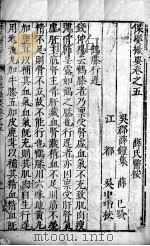 保嬰撮要卷之五　薛氏醫按
吳郡薛鎧集　薛己
江都　吳中珩校
鶴膝行遲
錢仲陽云鶴膝者乃稟受腎虛血氣不充致肌肉瘦
薄骨節呈露如鶴之膝也行遲者亦因稟受肝腎氣
虛肝主筋腎主骨肝藏血腎藏精血不足則筋不榮
精不足則骨不立故不能行也鶴膝用六味地黃丸
加鹿茸以補其血氣血氣既充則其肌肉自生行遲
用地黃丸加牛膝五加皮鹿茸以補其精血精血既